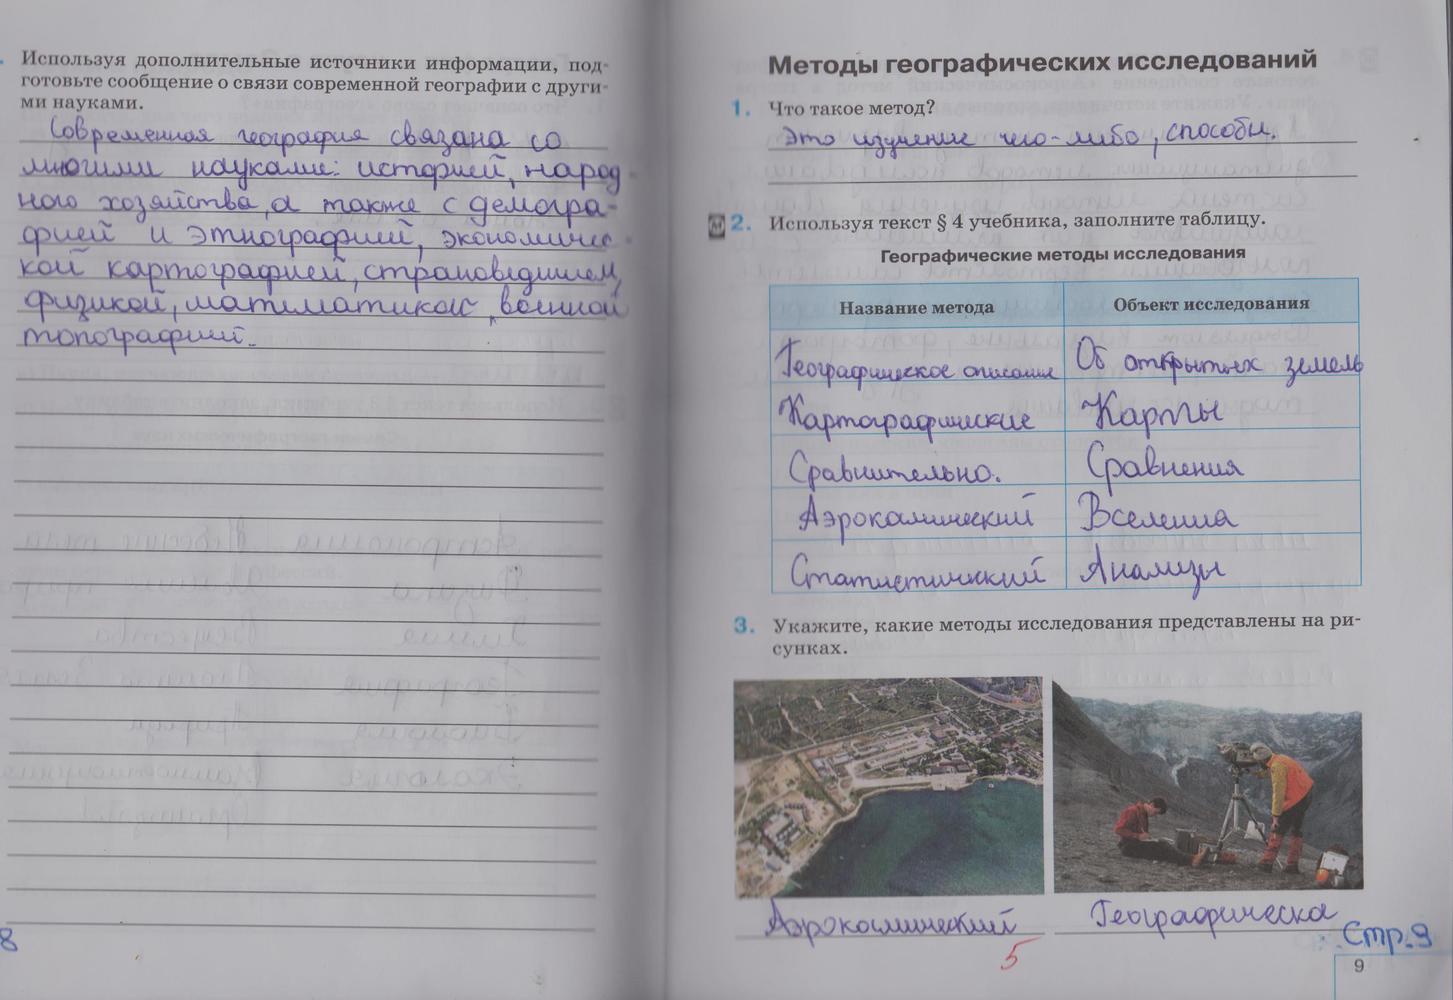 Используя дополнительные источники информации, под-
готовьте сообщение о связи современной географии с други-
ми науками.
Современная география связана со
многими науками: историей, народ-
ного хозяйства, а также с демогра-
фией и этнографией, экономичес-
кой картографией, страноведшием,
физикой, математикой, военной
топографией.
8
Методы географических исследований
1. Что такое метод?
Это изучение чего-либо, способы.
2. Используя текст § 4 учебника, заполните таблицу.
Географические методы исследования
Название метода Объект исследования
Географическое описание Об открытых земель
Картографические Карты
Сравнительно. Сравнения
Аэрокосмический Вселенна
Статистический Анализы
3. Укажите, какие методы исследования представлены на ри-
сунках.
Аэрокосмический Географическа
5
Стр.9
9